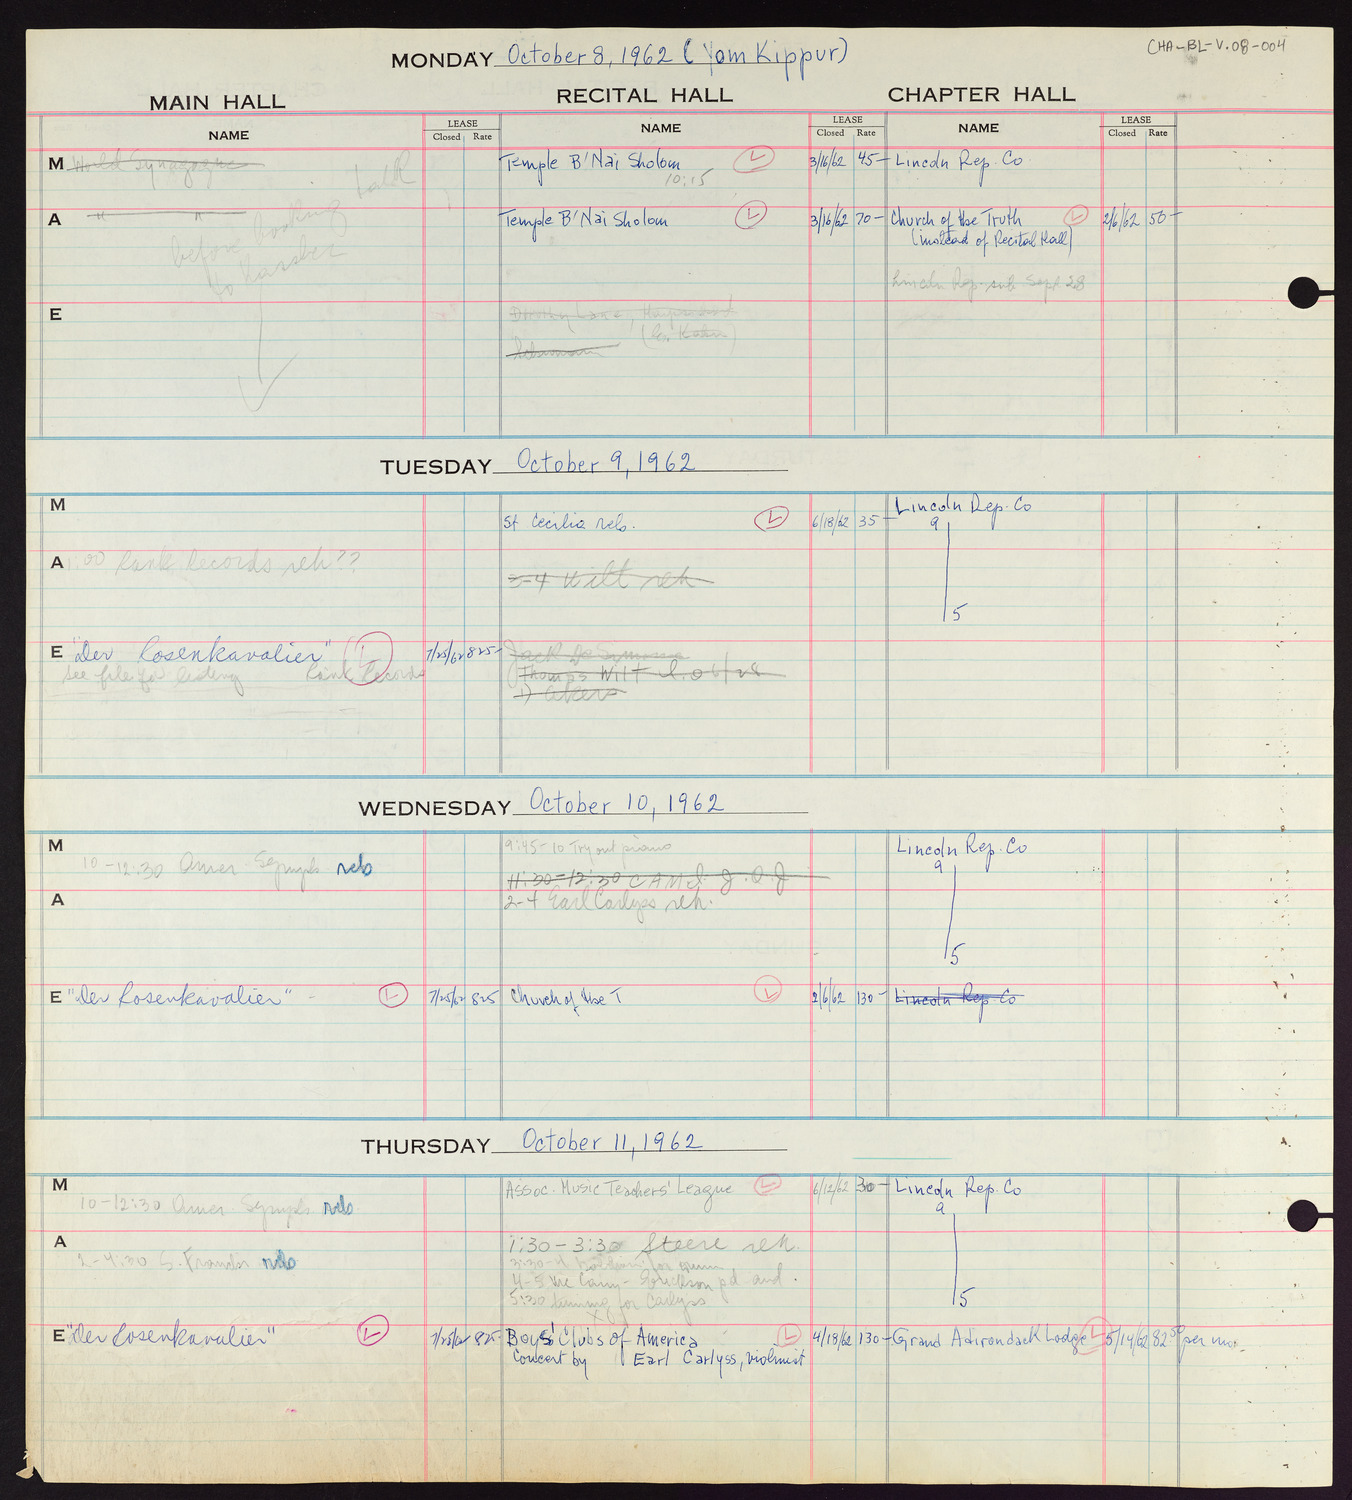 CHA-BL-V.08-004
MONDAY October 8, 1962 (Yom Kippur)
MAIN HALL RECITAL HALL CHAPTER HALL
NAME LEASE Closed Rate NAME LEASE Closed Rate NAME LEASE Closed Rate
M World Synagogue Temple B'Nai Sholom 3/16/62 45- Lincoln Rep. Co
10:15
talk
A " " Temple B'Nai Sholom 3/16/62 70- Church of the Truth 2/6/62 50-
(instead of Recital Hall)
before booking
to
Lincoln Rep. sub Sept 28
E Dorothy Lane, Harpsichord
(E. Kahn)
TUESDAY October 9, 1962
M Lincoln Rep. Co
St Cecilia reh. 6/18/62 35- 9
A 1:00 Rank Records reh??
3-4 Wilt reh
5
E "Der Rosenkavalier" 7/25/62 825- Jack De Simone
See file for Rank Records Thomas Wilt
1) Akers
WEDNESDAY October 10, 1962
M 9:45-10 Try out piano Lincoln Rep. Co
10-12:30 Amer. Symph reh 9
11:30-12:30 CAMI J.O.J
A 2-4 Earl Carlyss reh.
5
E "Der Rosenkavalier" 7/25/62 825 Church of the T 2/6/62 130- Lincoln Rep. Co
THURSDAY October 11, 1962
M Assoc. Music Teachers' League 6/12/62 30- Lincoln Rep. Co
10-12:30 Amer. Symph reh 9
A 1:30-3:30 Steere reh.
2-4:30 S. Franko reh
4-5 Mc Cann - Erickson pd aud.
5:30 tuning for Carlyss
5
E "Der Rosenkavalier" 7/25/62 825- Boys' Clubs of America 4/19/62 130- Grand Adirondack Lodge 5/14/62 82.50 per mo.
Concert by Earl Carlyss, violinist